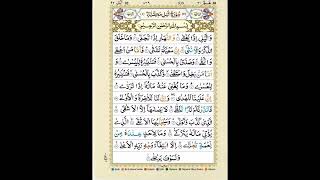 بِسْمِ اللهِ الرَّحْمٰنِ الرَّحِيْمِ
وَالَّيْلِ اِذَا يَغْشٰى وَالنَّهَارِ اِذَا تَجَلّٰى وَمَا خَلَقَ
الذَّكَرَ وَالْاُنْثٰى اِنَّ سَعْيَكُمْ لَشَتّٰى فَاَمَّا مَنْ اَعْطٰى
وَاتَّقٰى وَصَدَّقَ بِالْحُسْنٰى فَسَنُيَسِّرُهٗ لِلْيُسْرٰى
وَاَمَّا مَنْۢ بَخِلَ وَاسْتَغْنٰى وَكَذَّبَ بِالْحُسْنٰى فَسَنُيَسِّرُهٗ
لِلْعُسْرٰى وَمَا يُغْنِيْ عَنْهُ مَالُهٗٓ اِذَا تَرَدّٰى
اِنَّ عَلَيْنَا لَلْهُدٰى وَاِنَّ لَنَا لَلْاٰخِرَةَ وَالْاُوْلٰى
فَاَنْذَرْتُكُمْ نَارًا تَلَظّٰى لَا يَصْلٰىهَآ اِلَّا الْاَشْقَى
الَّذِيْ كَذَّبَ وَتَوَلّٰى وَسَيُجَنَّبُهَا الْاَتْقَى الَّذِيْ
يُؤْتِيْ مَالَهٗ يَتَزَكّٰى وَمَا لِاَحَدٍ عِنْدَهٗ مِنْ
نِّعْمَةٍ تُجْزٰٓى اِلَّا ابْتِغَآءَ وَجْهِ رَبِّهِ الْاَعْلٰى
وَلَسَوْفَ يَرْضٰى